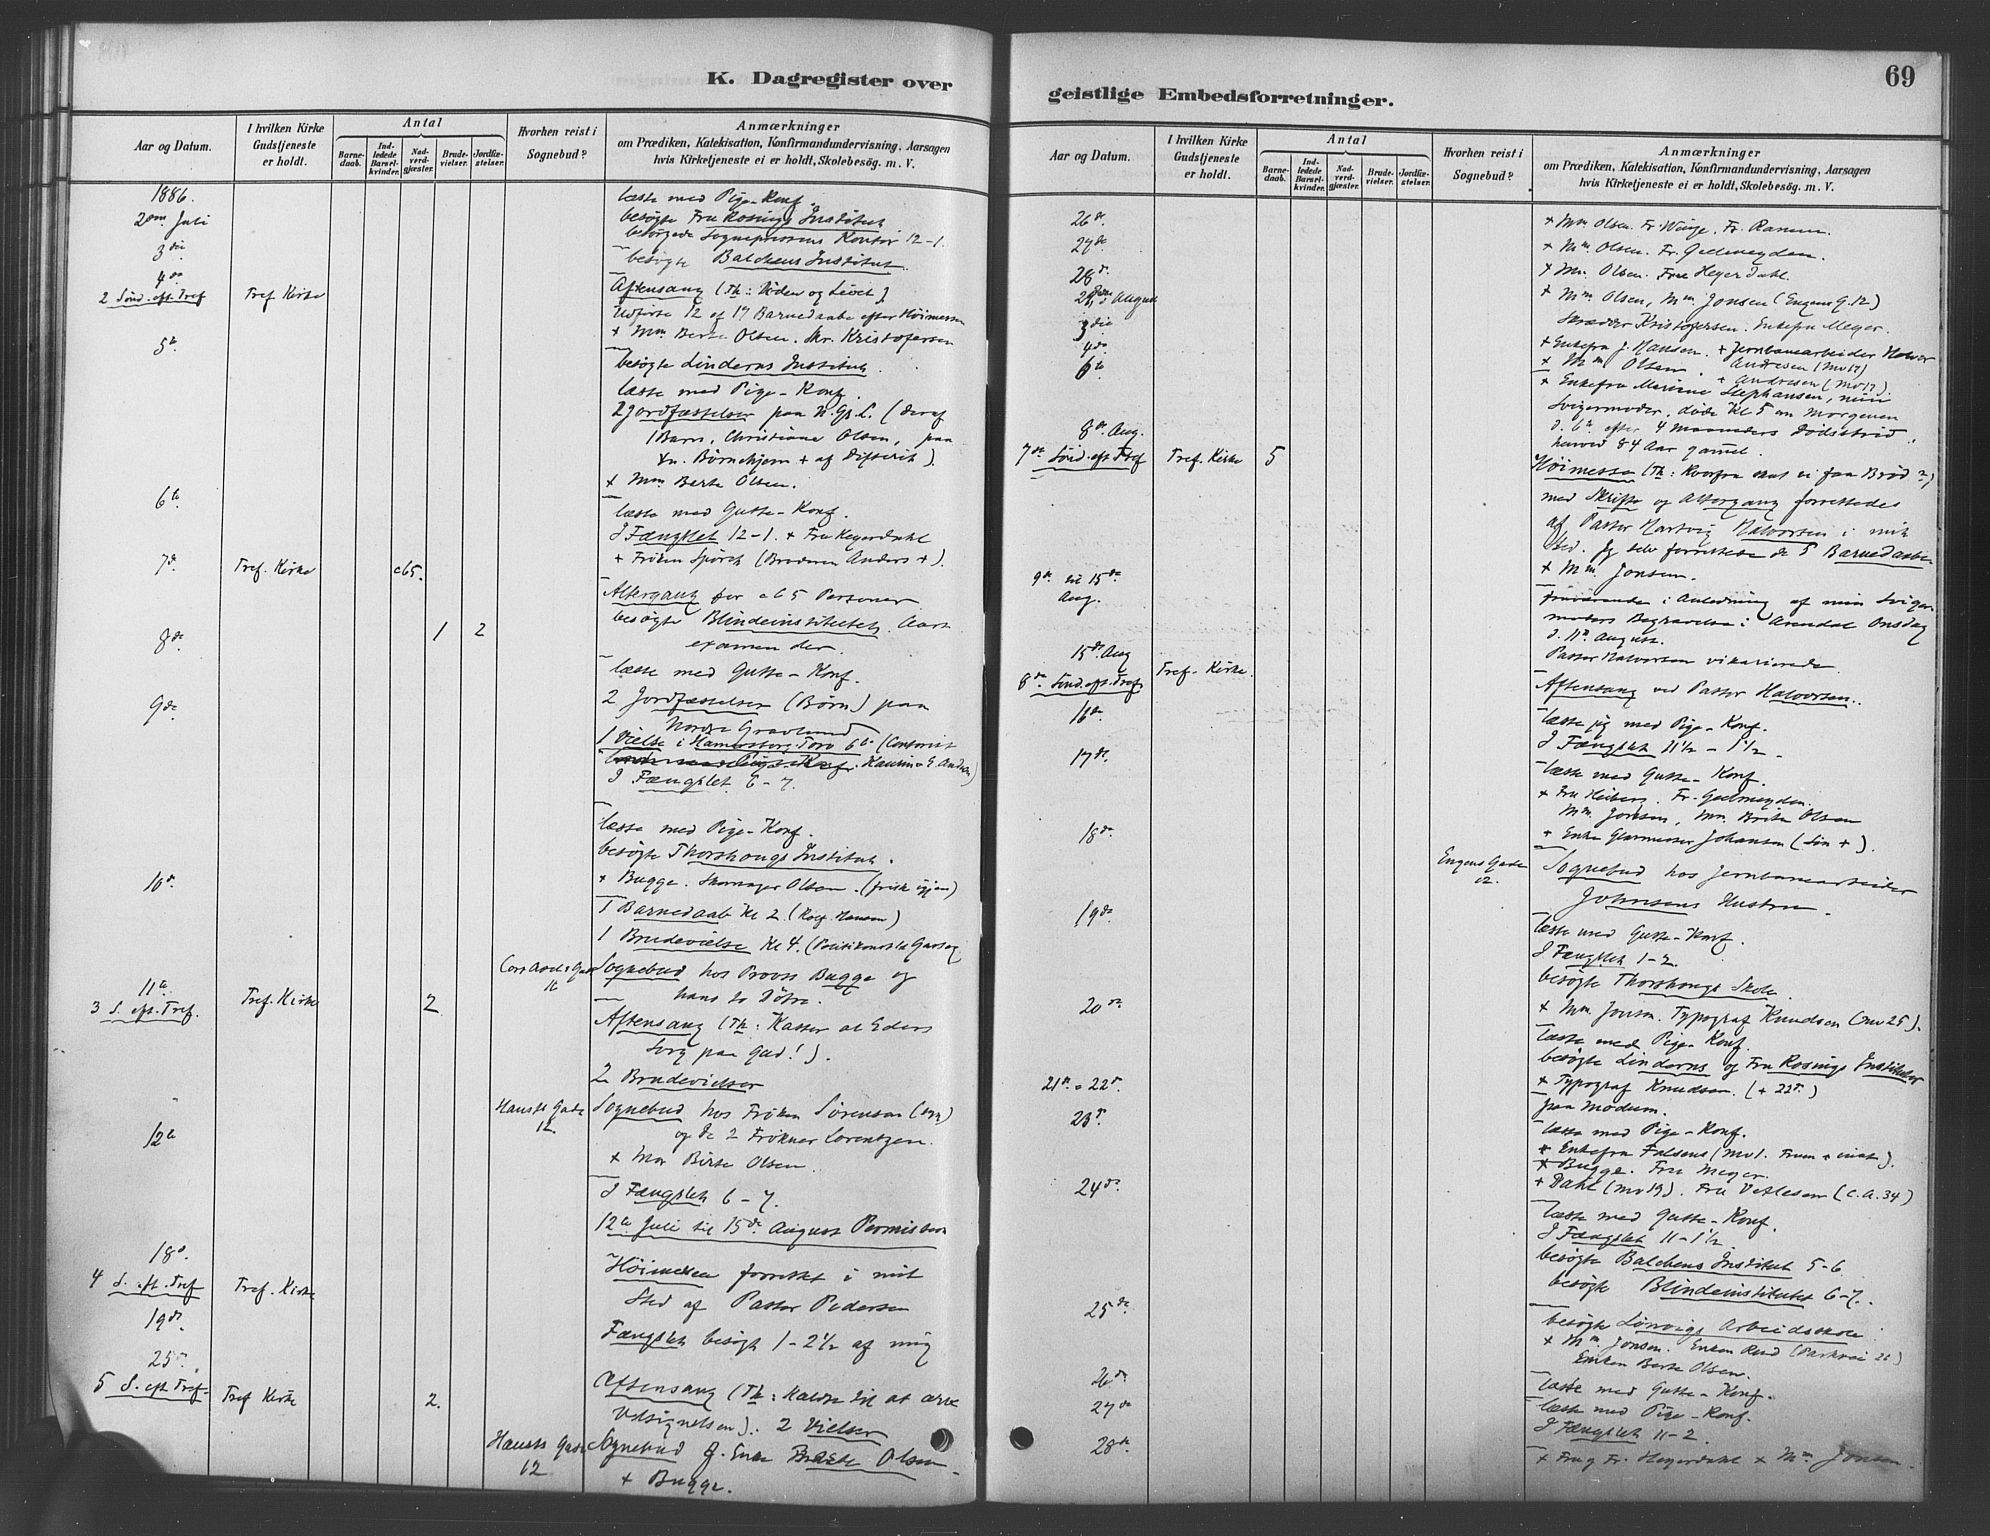 K. Dagregister over
geistlige Embedsforretninger.
69
Aar og Datum.
I hvilken Kirke Gudstjeneste er holdt.
Antal
Barnedaab.
Indledede Barselkvinder.
Nadverdgjæster.
Brudevielser.
Jordfæstelser.
Hvorhen reist i Sognebud?
Anmærkninger
om Prædiken, Katekisation, Konfirmandundervisning, Aarsagen
hvis Kirketjeneste ei er holdt, Skolebesög. m. V.
1886.
læste med Pige-Konf.
2den Juli
besøgte Fru Rosings Institut
besørgede Sognepræstens Kontor 12-1.
3die
besøgte Balchens Institut.
4de
2 Sönd. eft. Tref Tref Kirke
Aftensang (Th: Nöden og Livet)
Udførte 12 af 17 Barnedaabe efter Høimessen
5te
+ Mm Berte Olsen. Skr. Kristofersen
besøgte Linderns Institut.
læste med Pige-Konf.
2 Jordfæstelser paa N. Gr. L. (deraf
1 Barn, Christiane Olsen, paa
Børnehjem + af Difterit).
+ Mm Berte Olsen.
6te
læste med Gutte-Konf.
I Fængslet 12-1. + Fru Heyerdahl
+ Frøken Spørck (Broderen Anders +).
7de Tref. Kirke c65.
Altergang for c65 Personer
besøgte Blindeinstitutet. Aars
8de 1 2
examen der.
læste med Gutte-Konf.
2 Jordfæstelser (Børn) paa
9de
Nordre Gravlund
1 Vielse i Hamersborg Torv 6
I Fængslet 6-7.
læste med Pige-Konf.
besøgte Thorshougs Institut.
10de
+ Bugge. Skomager Olsen. (frisk igjen)
1 Barnedaab Kl 2. (Hansen)
1 Brudevielse Kl 4.
Sognebud hos Provst Bugge og
hans to Døtre.
11te
3 S. eft. Tref. Tref. Kirke 2
Aftensang (Th: Kaster al Eders
Sorg paa Gud!).
2 Brudevielser
Hausts Gade 12.
Sognebud hos Frøken Sørensen
og de 2 Frøkner Lorentzen.
12te
+ Mor Birte Olsen.
I Fængslet 6-7.
12te Juli til 15de August Permission
18de
4 S. eft. Tref Tref. Kirke
Høimesse forrettet i mit
Sted af Pastor Pedersen
19de
Fængslet besøgt 1-2½ af mig
25de
5 S. eft Tref. Tref Kirke 2.
Aftensang (Th: Kaldte til at arve
Velsignelsen). 2 Vielser
Hausts Gade 12
Sognebud Enke Berte Olsen
+ Bugge.
Aar og Datum.
I hvilken Kirke Gudstjeneste er holdt.
Antal
Barnedaab.
Indledede Barselkvinder.
Nadverdgjæster.
Brudevielser.
Jordfæstelser.
Hvorhen reist i Sognebud?
Anmærkninger
om Prædiken, Katekisation, Konfirmandundervisning, Aarsagen
hvis Kirketjeneste ei er holdt, Skolebesög. m. V.
26de
+ Mm Olsen. Fr Winge. Fr. Ramm.
27de
+ Mm Olsen. Fr. Gedmeyden.
28de
+ Mm. Olsen. Fru Heyerdahl.
2den August
+ Mm Olsen, Mm Jonsen (Eugens G. 12)
3die
Skrædder Kristofersen. Enkefru Meyer.
4de
+ Enkefru J. Hansen. + Jernbanearbeider Halvor Andresen
6te
+ Mm Olsen.
+ Enkefru Marine Stephansen, min
Svigermoder, døde Kl 5 om Morgenen
d. 6te efter 4 Maaneders Dødsstrid,
8de Aug.
henved 84 Aar gammel.
7de Sönd. eft Tref Tref. Kirke 5
Høimesse (Th: Hvorfra skal vi faa Brød?)
med Skrifte og Altergang forrettedes
af Pastor Hartvig Halvorsen i mit
Sted. Jeg selv forrettede de 5 Barnedaabe
+ Mm. Jonsen.
9de til 15de Aug.
fraværende i Anledning af min Svigermoders
Begravelse i Arendal Onsdag
d. 11te August.
Pastor Halvorsen vikarierede
15de Aug
8de Sönd. eft. Tref Tref. Kirke.
Aftensang ved Pastor Halvorsen.
16de
læste jeg med Pige-Konf.
I Fængslet 11½-1½.
17de
læste med Gutte-Konf.
+ Fru Heiberg. Fr. Gedmeyden.
Mm. Jonsen, Mm. Birte Olsen
18de
+ Enke Johansen (Søn +).
Eugens Gade 12.
Sognebud hos Jernbanearbeider
Johnsens Hustru.
19de
læste med Gutte-Konf.
I Fængslet 1-2.
besøgte Thorshougs Skole.
20de
+ Mm. Jonsen. Typograf Knudsen
læste med Pige-Konf.
besøgte Linderns og Fru Rosings Institutter
21de - 22de
+ Typograf Knudsen. (+ 22de)
paa Modum.
23de
læste med Pige-Konf.
+ Enkefru Falsens
+ Bugge. Fru Meyer.
24de
+ Dahl. Fru Vetlesen (C.A. 34)
læste med Gutte-Konf.
I Fængslet 11-1½
besøgte Balchens Institut 5-6
besøgte Blindeinstitutet 6-7.
25de
besøgte Arbeidsskole
+ Mm Jonsen. Enken Ruud (Parkvei 26)
Enken Berte Olsen.
26de
læste med Gutte-Konf.
27de
læste med Pige-Konf.
I Fængslet 11-2.
28de
+ Fru og Fr. Heyerdahl + Mm Jonsen.